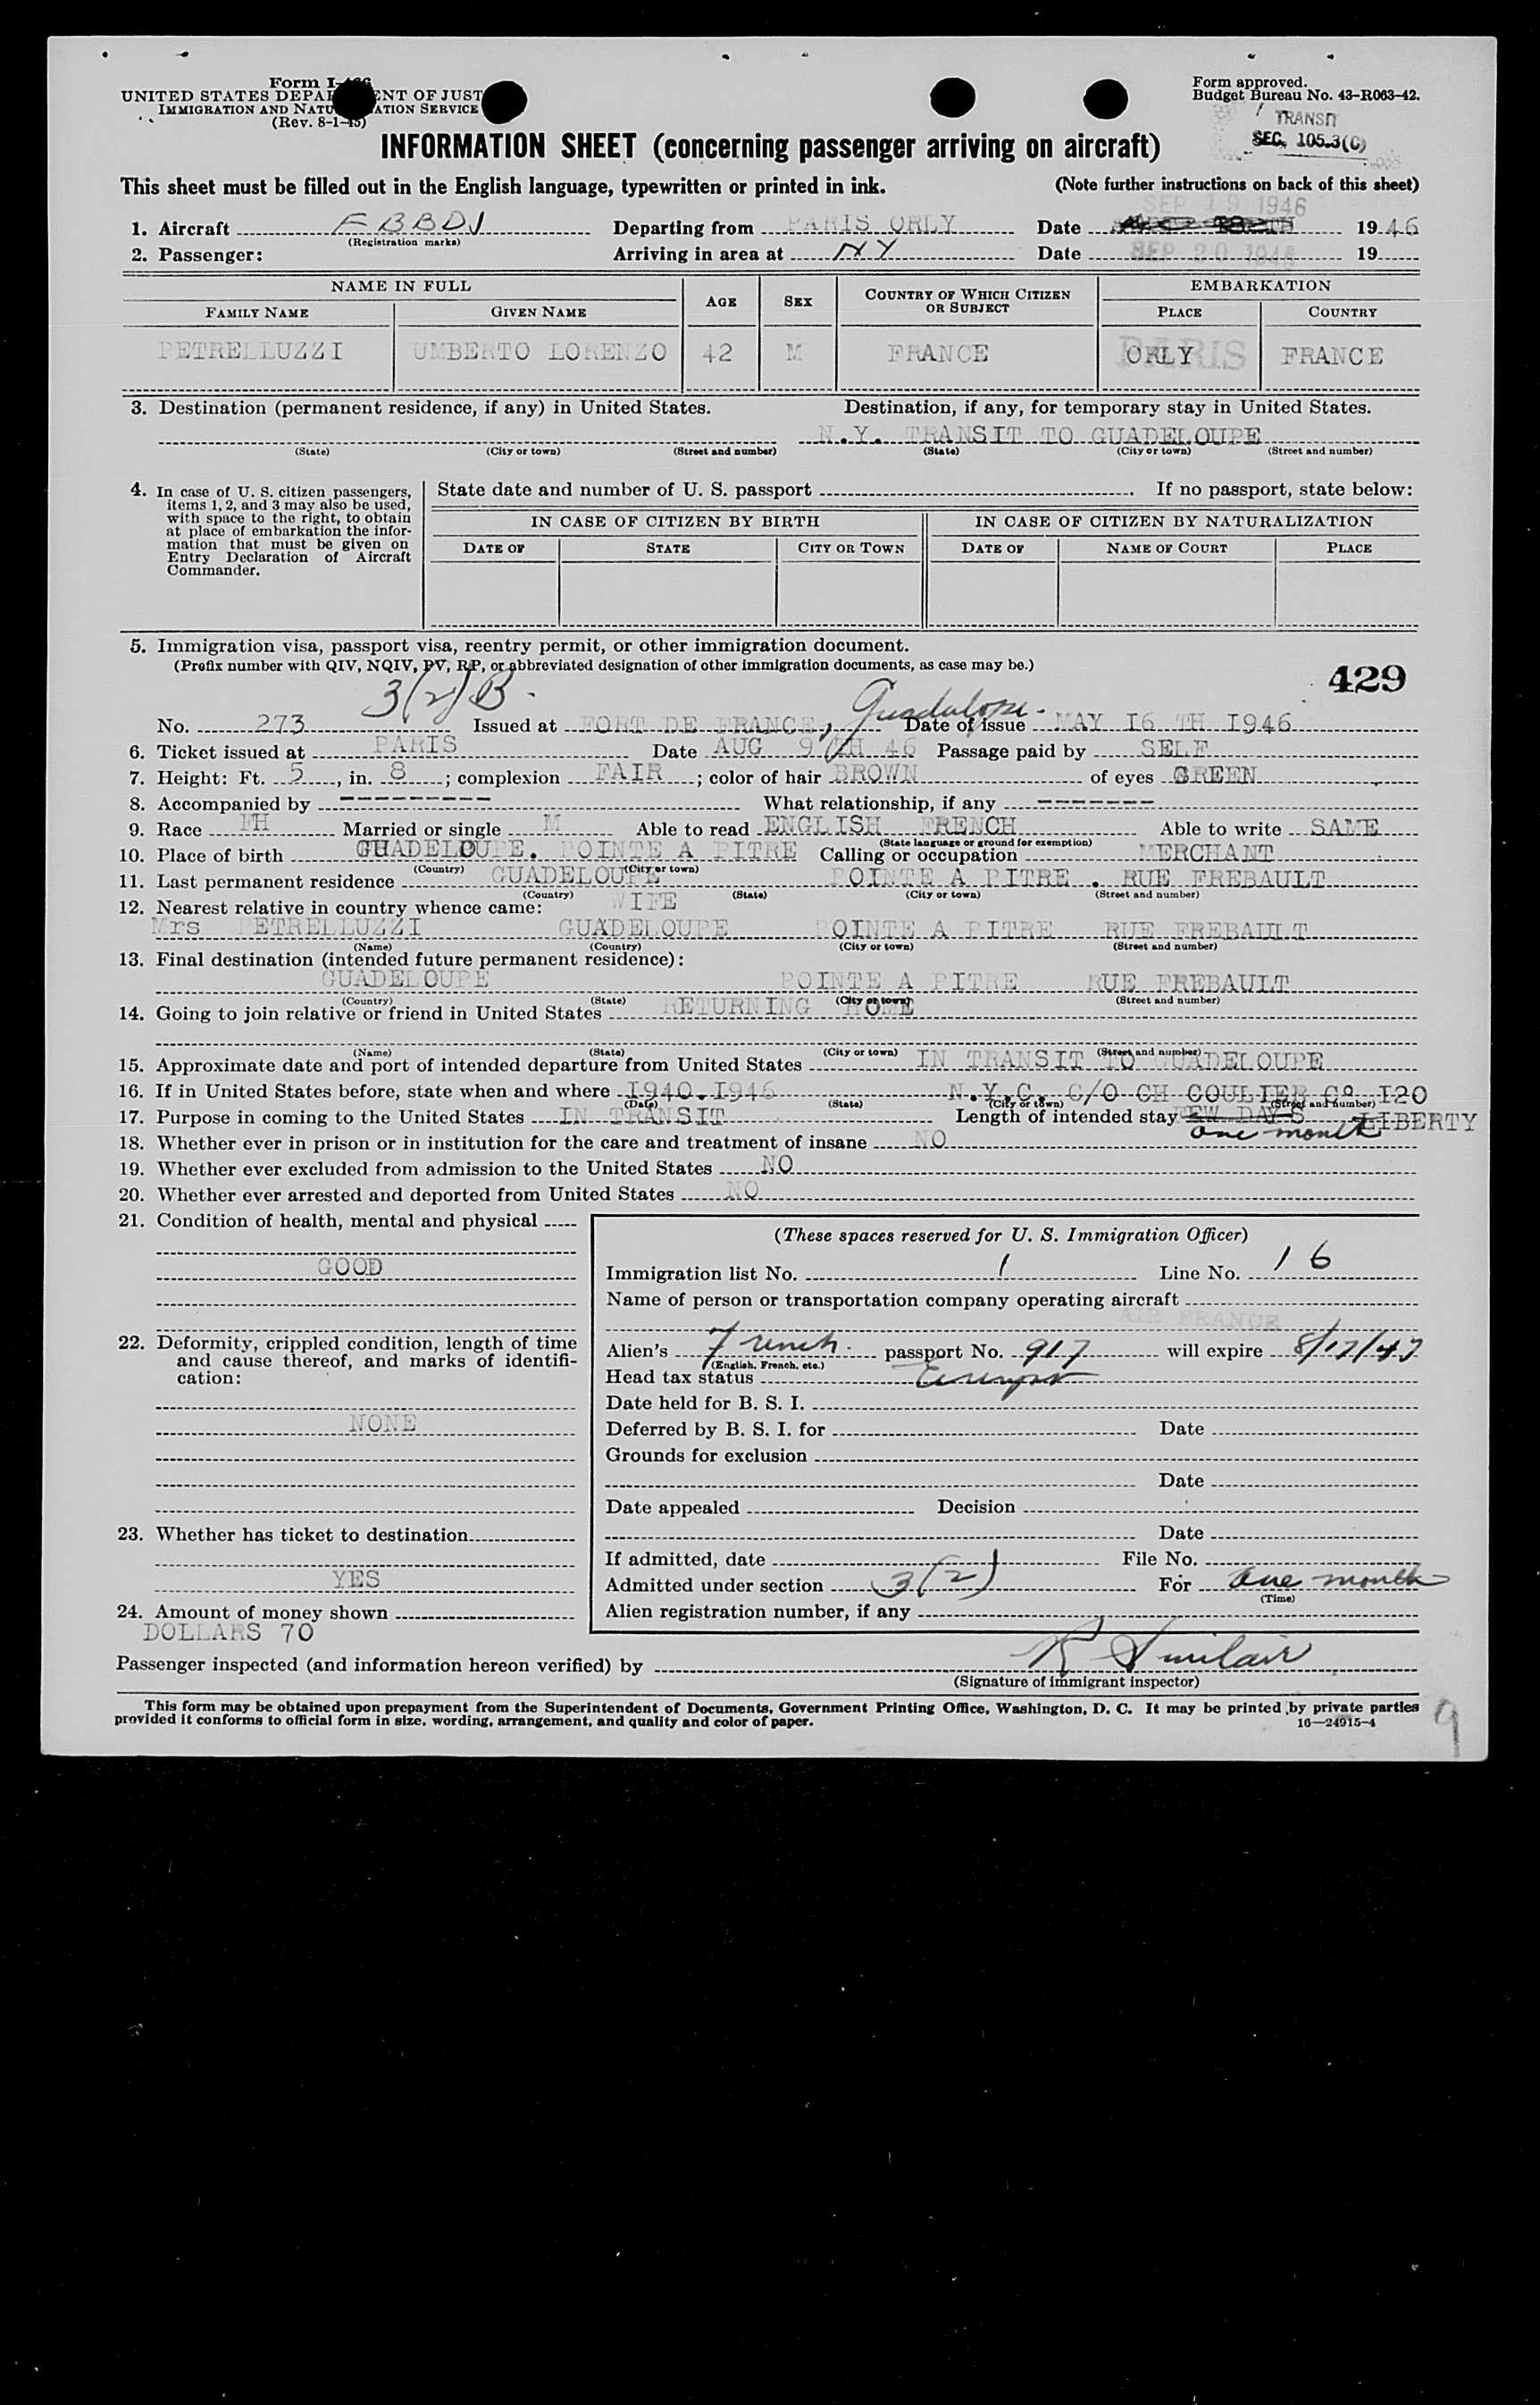 Form I-466
UNITED STATES DEPARTMENT OF JUST
IMMIGRATION AND NATURALIZATION SERVICE
(Rev. 8-1-45)
Form approved.
Budget Bureau No. 43-R063-42.
TRANSIT
SEC. 105.3(C)
INFORMATION SHEET (concerning passenger arriving on aircraft)
This sheet must be filled out in the English language, typewritten or printed in ink. (Note further instructions on back of this sheet)
SEP 19 1946
1. Aircraft FBBDJ Departing from PARIS ORLY Date 1946
(Registration marks)
2. Passenger: Arriving in area at NY Date SEP 20 1946 19
NAME IN FULL AGE SEX COUNTRY OF WHICH CITIZEN OR SUBJECT EMBARKATION
FAMILY NAME GIVEN NAME PLACE COUNTRY
PETRELLUZZI UMBERTO LORENZO 42 M FRANCE PARIS ORLY FRANCE
3. Destination (permanent residence, if any) in United States. Destination, if any, for temporary stay in United States.
N.Y. TRANSIT TO GUADELOUPE
(State) (City or town) (Street and number) (State) (City or town) (Street and number)
4. In case of U. S. citizen passengers,
items 1, 2, and 3 may also be used,
with space to the right, to obtain
at place of embarkation the infor-
mation that must be given on
Entry Declaration of Aircraft
Commander.
State date and number of U. S. passport . If no passport, state below:
IN CASE OF CITIZEN BY BIRTH IN CASE OF CITIZEN BY NATURALIZATION
DATE OF STATE CITY OR TOWN DATE OF NAME OF COURT PLACE
5. Immigration visa, passport visa, reentry permit, or other immigration document.
(Prefix number with QIV, NQIV, PV, RP, or abbreviated designation of other immigration documents, as case may be.)
429
3(2)B. Guadalope.
No. 273 Issued at FORT DE FRANCE, Date of issue MAY I6 TH I946
6. Ticket issued at PARIS Date AUG 9 TH 46 Passage paid by SELF
7. Height: Ft. 5, in. 8; complexion FAIR; color of hair BROWN of eyes GREEN
8. Accompanied by --------- What relationship, if any -------
9. Race FH Married or single M Able to read ENGLISH FRENCH Able to write SAME
(State language or ground for exemption)
10. Place of birth GUADELOUPE. POINTE A PITRE Calling or occupation MERCHANT
(Country) (City or town)
11. Last permanent residence GUADELOUPE POINTE A PITRE . RUE FREBAULT
(Country) (State) (City or town) (Street and number)
12. Nearest relative in country whence came: WIFE
Mrs PETRELLUZZI GUADELOUPE POINTE A PITRE RUE FREBAULT
(Name) (Country) (City or town) (Street and number)
13. Final destination (intended future permanent residence):
GUADELOUPE POINTE A PITRE RUE FREBAULT
(Country) (State) (City or town) (Street and number)
14. Going to join relative or friend in United States RETURNING HOME
(Name) (State) (City or town) (Street and number)
15. Approximate date and port of intended departure from United States IN TRANSIT TO GUADELOUPE
16. If in United States before, state when and where I940.I946 N.Y.C. C/O CH GOULIER Co I20
(Date) (State) (City or town) (Street and number)
17. Purpose in coming to the United States IN TRANSIT Length of intended stay FEW DAYS LIBERTY
one month
18. Whether ever in prison or in institution for the care and treatment of insane NO
19. Whether ever excluded from admission to the United States NO
20. Whether ever arrested and deported from United States NO
21. Condition of health, mental and physical
GOOD
22. Deformity, crippled condition, length of time
and cause thereof, and marks of identifi-
cation:
NONE
23. Whether has ticket to destination
YES
24. Amount of money shown
DOLLARS 70
(These spaces reserved for U. S. Immigration Officer)
Immigration list No. 1 Line No. 16
Name of person or transportation company operating aircraft
AIR FRANCE
Alien's French passport No. 917 will expire 8/17/47
(English, French, etc.)
Head tax status Exempt
Date held for B. S. I.
Deferred by B. S. I. for Date
Grounds for exclusion
Date
Date appealed Decision
Date
If admitted, date File No.
Admitted under section 3(2) For One month
(Time)
Alien registration number, if any
Passenger inspected (and information hereon verified) by R Sinclair
(Signature of immigrant inspector)
This form may be obtained upon prepayment from the Superintendent of Documents, Government Printing Office, Washington, D. C. It may be printed by private parties
provided it conforms to official form in size, wording, arrangement, and quality and color of paper. 16—24915-4
9